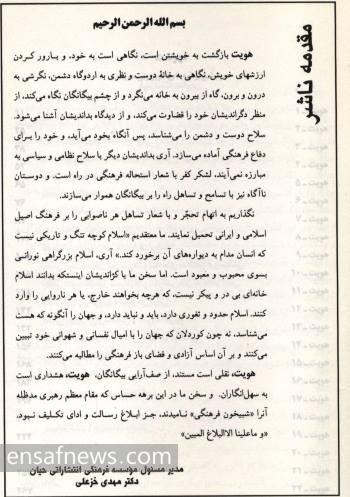 مقدمه ناشر
بسم الله الرحمن الرحیم
هویت بازگشت به خویشتن است، نگاهی است به خود، و بارور کردن
ارزشهای خویش، نگاهی به خانهٔ دوست و نظری به اردوگاه دشمن، نگرشی به
درون و برون، گاه از بیرون به خانه می‌نگرد و از چشم بیگانگان نگاه می‌کند، از
منظر دگراندیشان خود را قضاوت می‌کند، و از دیدگاه بداندیشان آشنا می‌شود.
سلاح دوست و دشمن را می‌شناسد، پس آنگاه بخود می‌آید، و خود را برای
دفاع فرهنگی آماده می‌سازد. آری بداندیشان دیگر با سلاح نظامی و سیاسی به
مبارزه نمی‌آیند، لشکر کفر با شعار استحاله فرهنگی در راه است. و دوستان
ناآگاه نیز با تسامح و تساهل راه را بر بیگانگان هموار می‌سازند.
نگذاریم به اتهام تحجّر و با شعار تساهل هر ناصوابی را بر فرهنگ اصیل
اسلامی و ایرانی تحمیل نمایند. ما معتقدیم «اسلام کوچه تنگ و تاریکی نیست
که انسان مدام به دیواره‌های آن برخورد کند.» آری، اسلام بزرگراهی نورانی
بسوی محبوب و معبود است. اما سخن ما با کژاندیشان اینستکه بدانند اسلام
خانه‌ای بی در و پیکر نیست، که هرچه بخواهند خارج، یا هر ناروایی را وارد
کنند. اسلام حدود و ثغوری دارد، باید و نباید دارد، و جهان را آنگونه که هست
می‌شناسد، نه چون کوردلان که جهان را با امیال نفسانی و شهوانی خود تبیین
می‌کنند و بر آن اساس آزادی و فضای باز فرهنگی را مطالبه می‌کنند.
هویت، نقلی است مستند، از صف‌آرایی بیگانگان، هویت، هشداری است
به سهل‌انگاران. و سخن ما در این برهه حساس که مقام معظم رهبری مدظله
آنرا «شبیخون فرهنگی» نامیدند، جز ابلاغ رسالت و ادای تکلیف نبود.
«و ماعلینا الاالبلاغ المبین»
مدیر مسئول مؤسسه فرهنگی انتشاراتی حیان
دکتر مهدی خزعلی
ensafnews.com